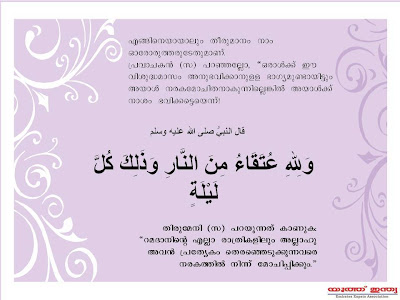 എങ്ങിനെയായാലും തീരുമാനം നാം
ഓരോരുത്തരുടേതുമാണ്.
പ്രവാചകന്‍ (സ) പറഞ്ഞല്ലോ, “ഒരാള്‍ക്ക് ഈ
വിശുദ്ധമാസം അനുഭവിക്കാനുളള ഭാഗ്യമുണ്ടായിട്ടും
അയാള്‍ നരകമോചിതനാകുന്നില്ലെങ്കില്‍ അയാള്‍ക്ക്
നാശം ഭവിക്കട്ടെയെന്ന്!
قال النبيُّ صلى الله عليه وسلم
وَلِلهِ عُتَقَاءُ مِنَ النَّارِ وَذَلِكَ كُلَّ
لَيْلَةٍ
തിരുമേനി (സ) പറയുന്നത് കാണുക:
“റമദാനിന്റെ എല്ലാ രാത്രികളിലും അല്ലാഹു
അവന്‍ പ്രത്യേകം തെരഞ്ഞെടുക്കുന്നവരെ
നരകത്തില്‍ നിന്ന് മോചിപ്പിക്കും.”
യൂത്ത് ഇന്ത്യ
Emirates Expats Association